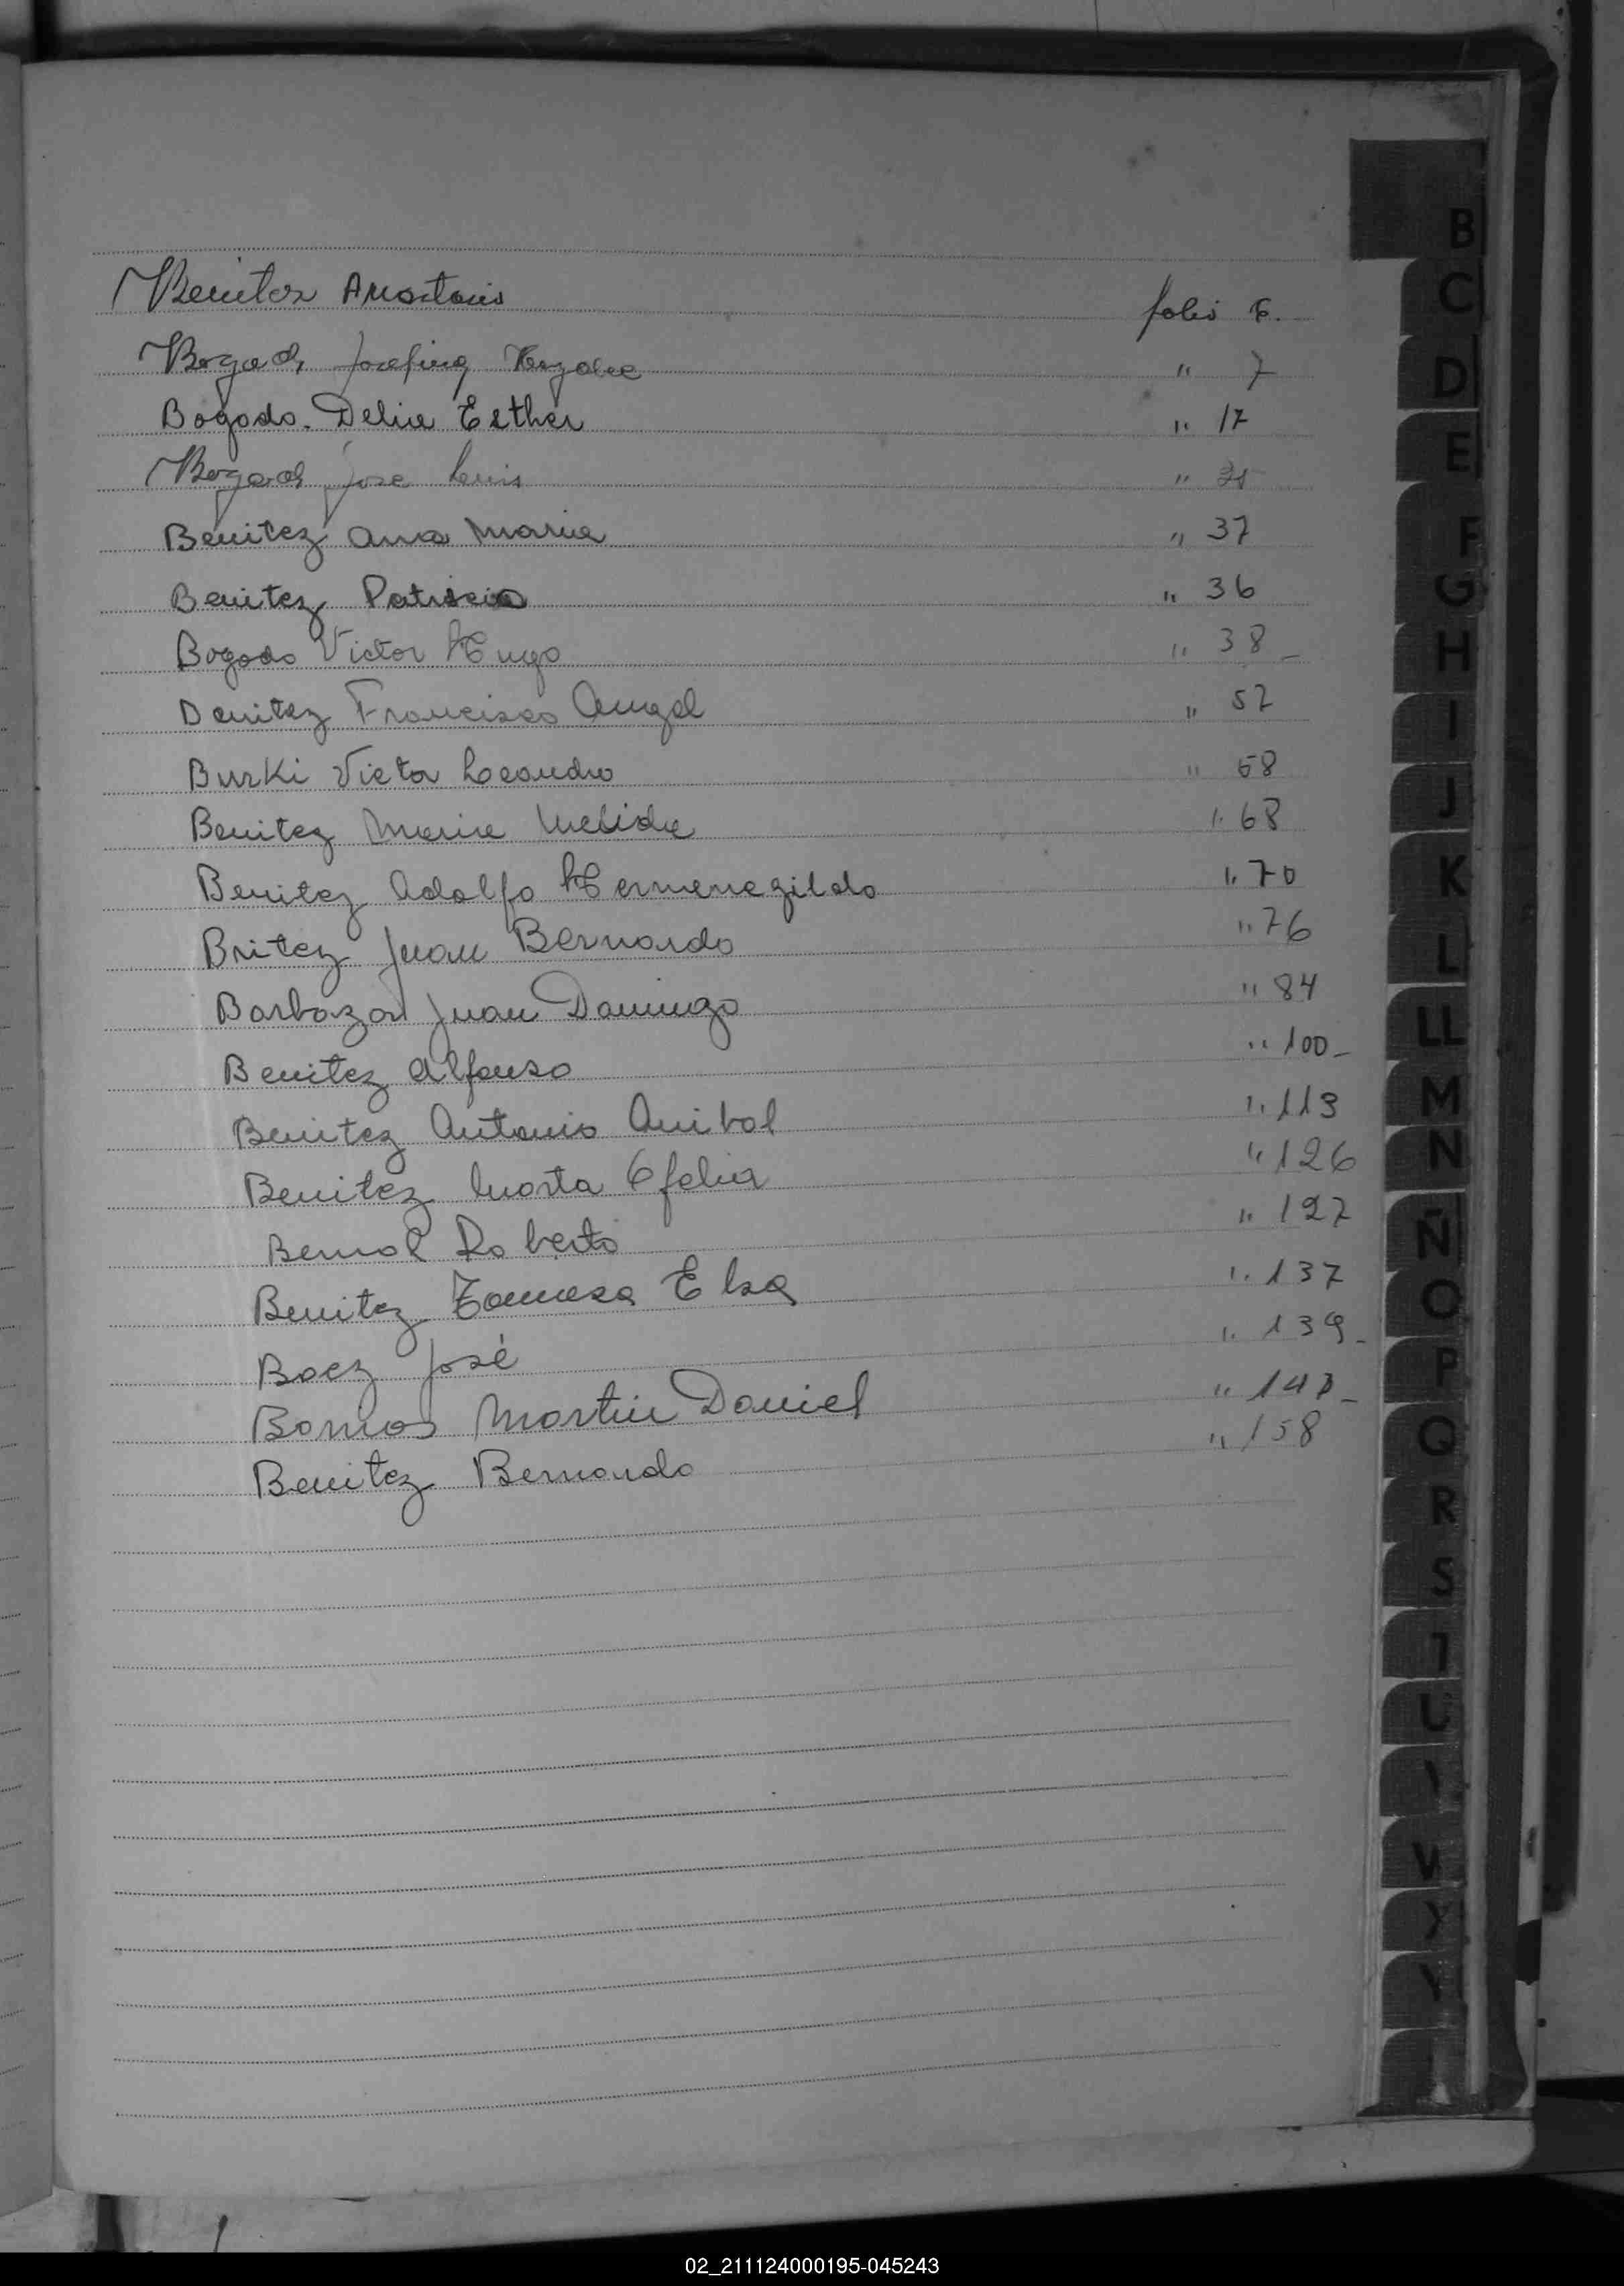 Benitez Anastacio folio 6.
Bogado Josefina " 7
Bogado. Delia Esther " 17
Bogado Jose Luis "
Benitez Ana Maria " 37
Benitez Patricia " 36
Bogado Victor Hugo " 38_
Benitez Francisco Angel " 52
Burki Victor Leandro " 58
Benitez Maria Melida " 68
Benitez Adolfo Hermenegildo " 70
Britez Juan Bernardo " 76
Barboza Juan Domingo " 84
Benitez Alfonso " 100_
Benitez Antonio Anibal " 113
Benitez Marta Ofelia " 126
Bernal Roberto " 127
Benitez Tomasa Elsa " 137
Baez José " 139_
Barrios Martin Daniel "
Benitez Bernardo " 158
B
C
D
E
F
G
H
I
J
K
L
LL
M
N
Ñ
O
P
Q
R
S
T
U
V
X
Y
02_211124000195-045243